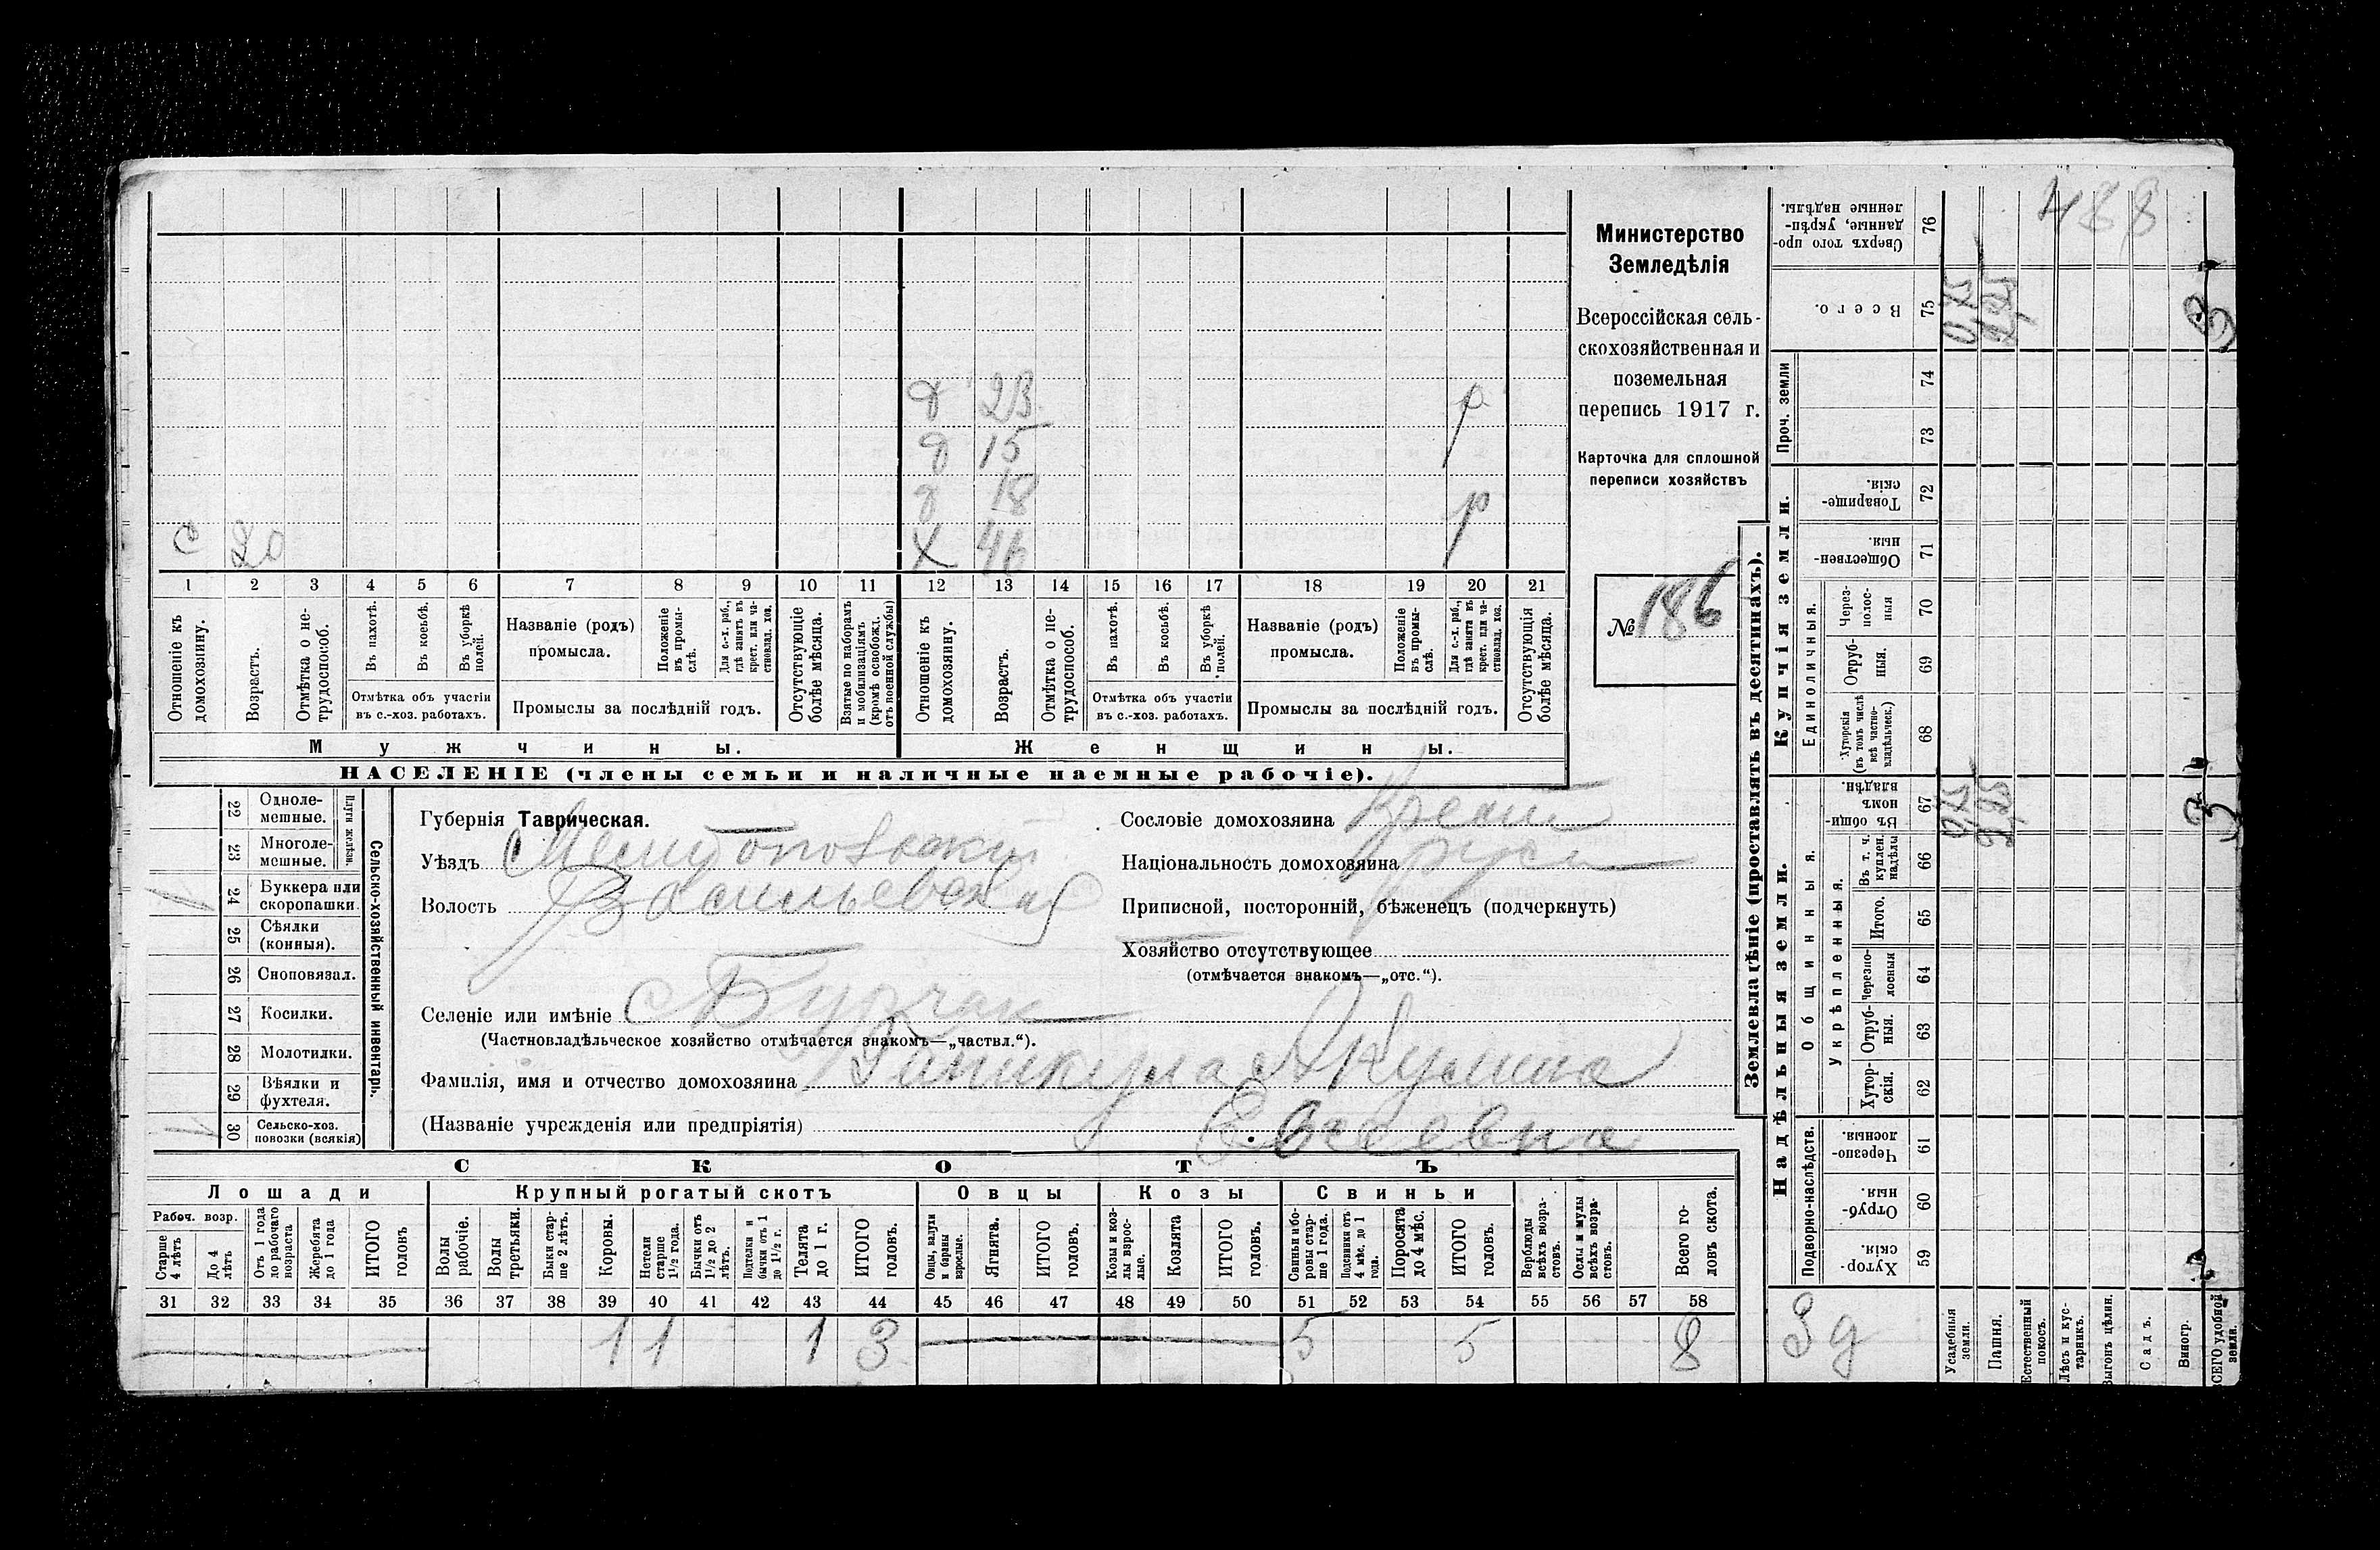 488
Министерство
Земледѣлія
Всероссійская сель-
скохозяйственная и
поземельная
перепись 1917 г.
Карточка для сплошной
переписи хозяйствъ
№ 186
д 23 р
д 15
д 18 р
с 20 х 46
1 2 3 4 5 6 7 8 9 10 11 12 13 14 15 16 17 18 19 20 21
Отношеніе къ домохозяину.
Возрастъ.
Отмѣтка о не-трудоспособ.
Въ пахотѣ.
Въ косьбѣ.
Въ уборкѣ полей.
Отмѣтка объ участіи
въ с.-хоз. работахъ.
Названіе (родъ)
промысла.
Положеніе въ промы-слѣ.
Для с.-х. раб., гдѣ занятъ въ крест. или ча-стновлад. хоз.
Промыслы за послѣдній годъ.
Отсутствующіе болѣе мѣсяца.
Взятые по наборамъ и мобилизаціямъ (кромѣ освобожд. отъ военной службы)
Отношеніе къ домохозяину.
Возрастъ.
Отмѣтка о не-трудоспособ.
Въ пахотѣ.
Въ косьбѣ.
Въ уборкѣ полей.
Отмѣтка объ участіи
въ с.-хоз. работахъ.
Названіе (родъ)
промысла.
Положеніе въ промы-слѣ.
Для с.-х. раб., гдѣ занята въ крест. или ча-стновлад. хоз.
Промыслы за послѣдній годъ.
Отсутствующія болѣе мѣсяца.
Мужчины. Женщины.
НАСЕЛЕНІЕ (члены семьи и наличные наемные рабочіе).
Сельско-хозяйственный инвентарь.
Плуги желѣзн.
22 Одноле-мешные.
23 Многоле-мешные.
24 Буккера или скоропашки.
25 Сѣялки (конныя).
26 Сноповязал.
27 Косилки.
28 Молотилки.
29 Вѣялки и фухтеля.
30 Сельско-хоз. повозки (всякія)
Губернія Таврическая.
Уѣздъ Мелитопольскій
Волость Васильевская
Селеніе или имѣніе Бурчак
(Частновладѣльческое хозяйство отмѣчается знакомъ—„частвл.“).
Фамилія, имя и отчество домохозяина Акулина
(Названіе учрежденія или предпріятія) Евсеевна
Сословіе домохозяина Крест
Національность домохозяина русс
Приписной, посторонній, бѣженецъ (подчеркнуть)
Хозяйство отсутствующее
(отмѣчается знакомъ—„отс.“).
СКОТЪ
Лошади Крупный рогатый скотъ Овцы Козы Свиньи
Рабоч. возр.
Старше 4 лѣтъ
До 4 лѣтъ
Отъ 1 года до рабочаго возраста
Жеребята до 1 года
ИТОГО головъ
Волы рабочіе.
Волы третьяки.
Быки стар-ше 2 лѣтъ.
Коровы.
Нетели старше 1½ года.
Бычки отъ 1½ до 2 лѣтъ.
Подтелки и бычки отъ 1 до 1½ г.
Телята до 1 г.
ИТОГО головъ.
Овцы, валухи и бараны взрослые.
Ягнята.
ИТОГО головъ.
Козы и коз-лы взрос-лые.
Козлята
ИТОГО головъ.
Свиньи и бо-ровы стар-ше 1 года.
Подсвинки отъ 4 мѣс. до 1 года.
Поросята до 4 мѣс.
ИТОГО головъ.
Верблюды всѣхъ возра-стовъ.
Ослы и мулы всѣхъ возра-стовъ.
Всего го-ловъ скота.
31 32 33 34 35 36 37 38 39 40 41 42 43 44 45 46 47 48 49 50 51 52 53 54 55 56 57 58
1 1 1 3 5 5 8
Землевладѣніе (проставлять въ десятинахъ).
Надѣльныя земли. Купчія земли. Проч. земли
Подворно-наслѣдств.
Общинныя.
Укрѣпленныя.
Единоличныя.
59 Хутор-скія.
60 Отруб-ныя.
61 Черезпо-лосныя.
62 Хутор-скія.
63 Отруб-ныя.
64 Черезпо-лосныя
65 Итого.
66 Въ т. ч. куплен. надѣлы
67 Въ общи-номъ владѣн.
68 Хуторскія (въ томъ числѣ всѣ частно-владѣльческ.)
69 Отруб-ныя.
70 Через-полос-ныя
71 Обществен-ныя.
72 Товарище-скія.
73
74
75 Всего.
76 Сверхъ того про-данные, укрѣп-ленные надѣлы.
Усадебныя земли.
Пашня.
Естественный покосъ.
Лѣсъ и кус-тарникъ.
Выгонъ цѣлин.
Садъ.
Виногр.
ВСЕГО удобной земли.